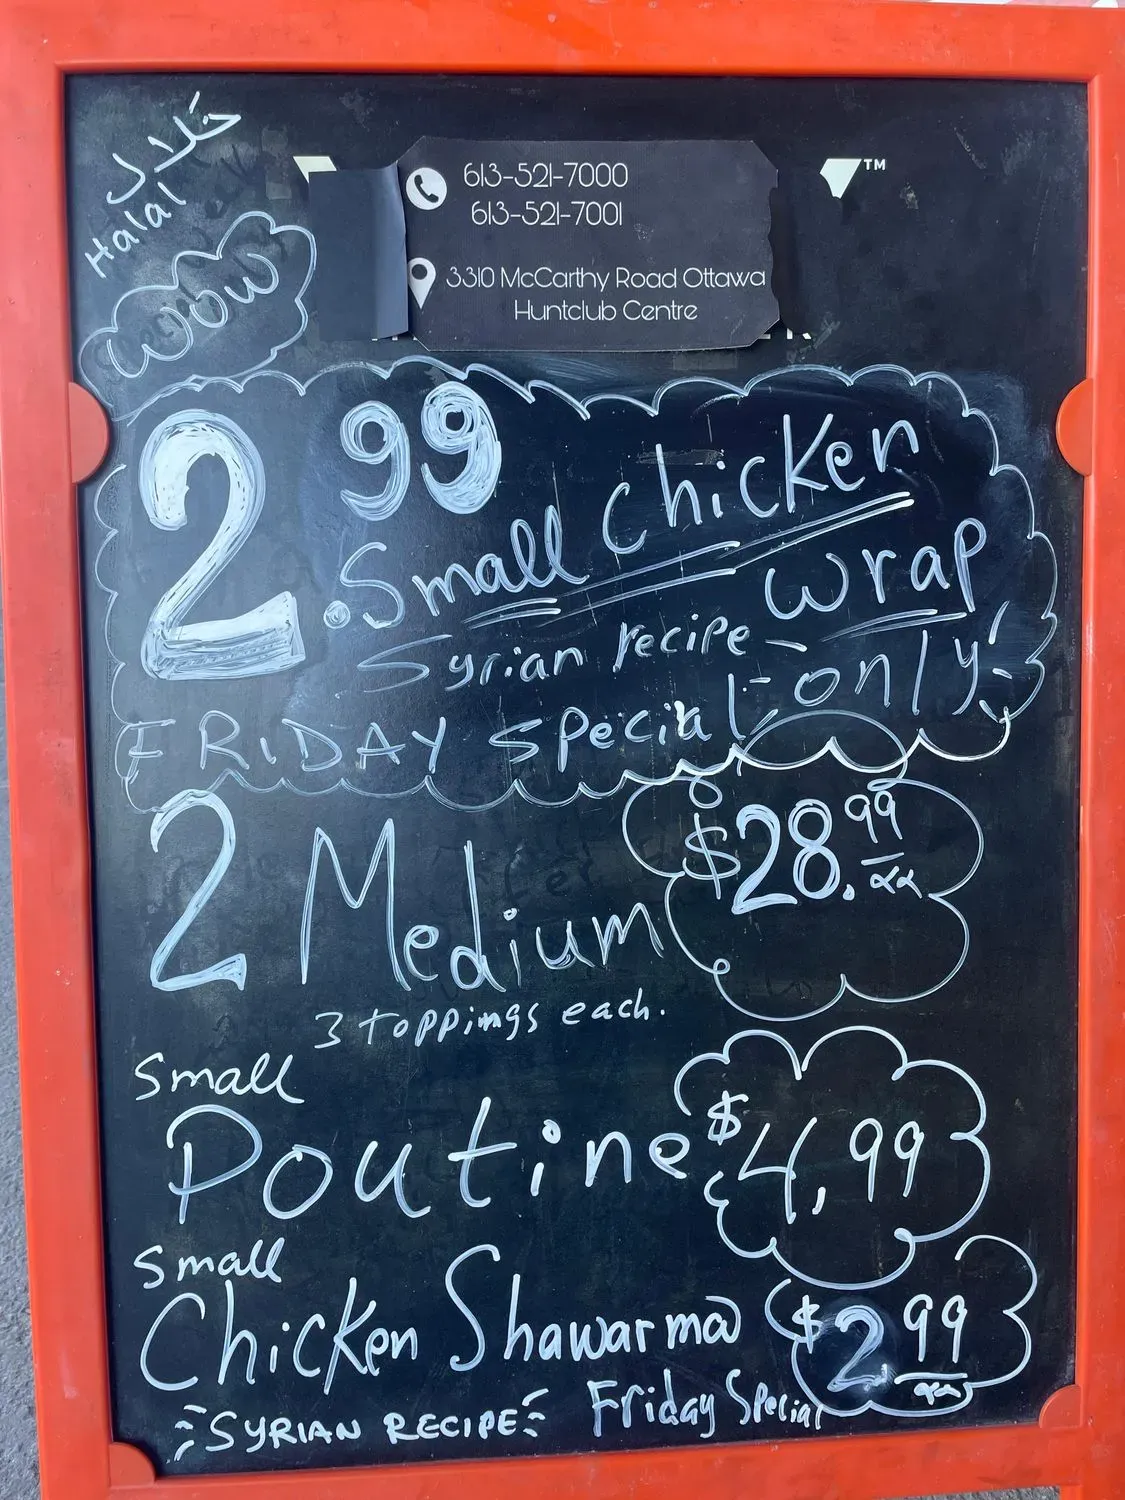 حلال
Halal
WOW
™
613-521-7000
613-521-7001
3310 McCarthy Road Ottawa
Huntclub Centre
2.99
Small Chicken
Wrap
Syrian recipe
FRIDAY Special only
2 Medium
$28.99
3 toppings each.
Small
Poutine $4,99
Small
Chicken Shawarma $2.99
SYRIAN RECIPE Friday Special